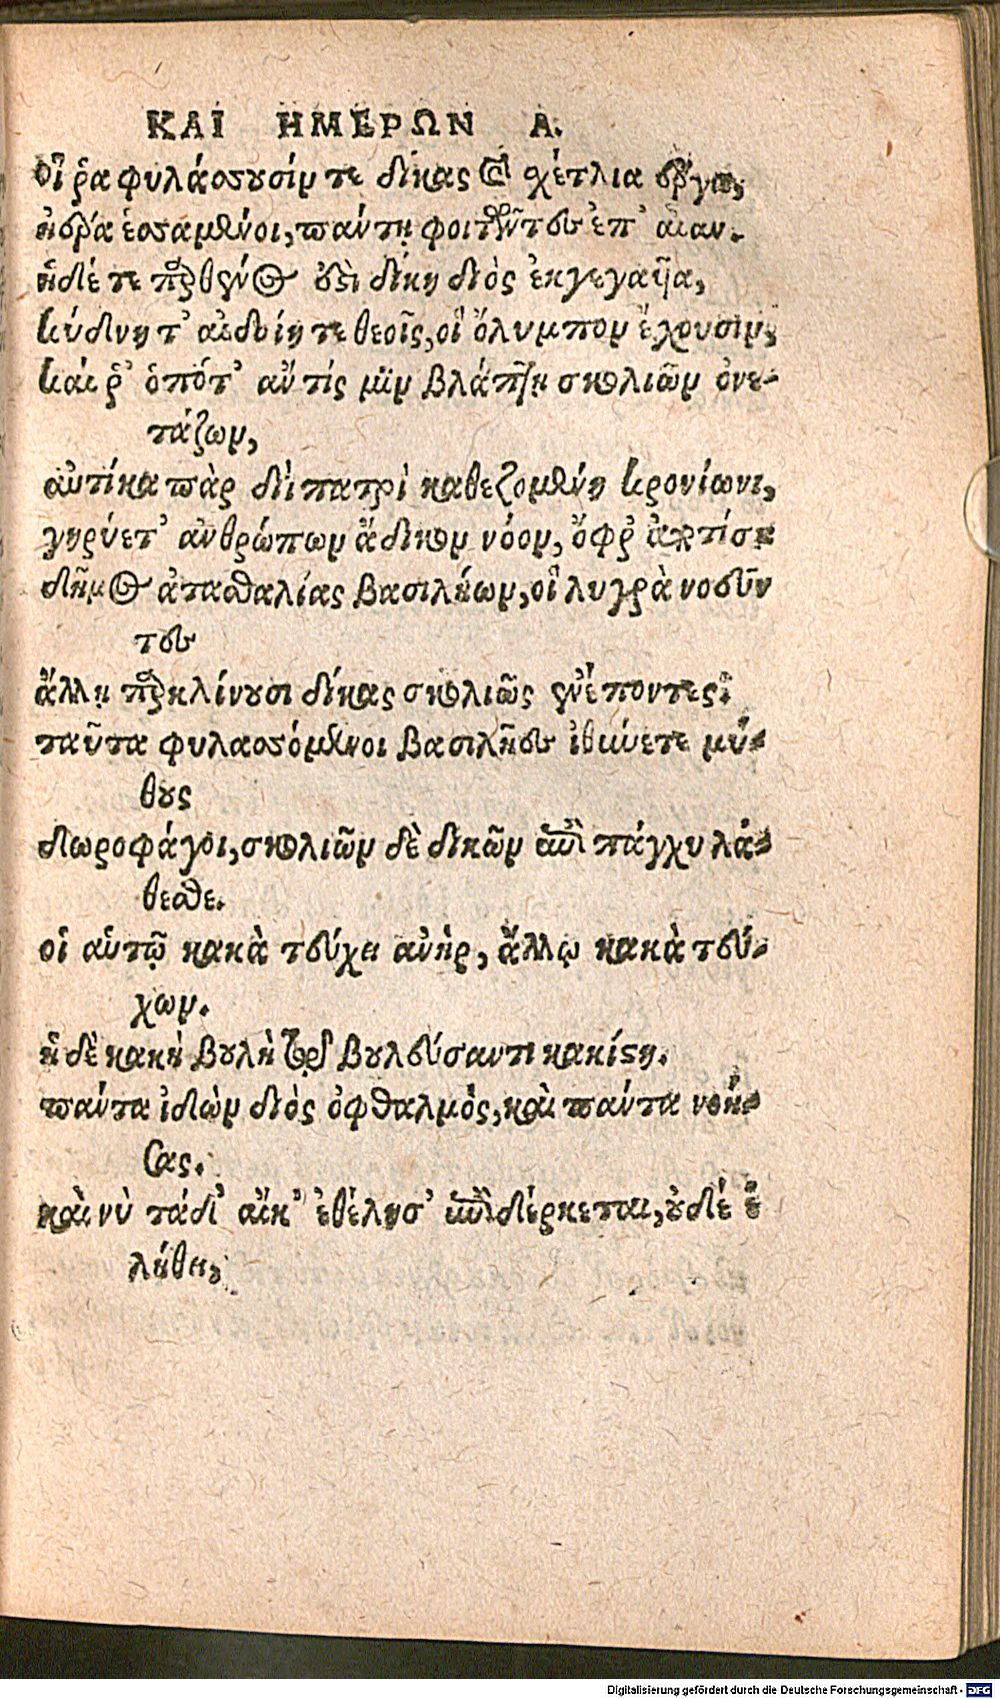 ΚΑΙ ΗΜΕΡΩΝ Α.
οἵ ῥα φυλάσσουσίν τε δίκας καὶ σχέτλια ἔργα,
ἠέρα ἑσσάμενοι, πάντῃ φοιτῶντες ἐπ' αἶαν.
ἥδέ τε παρθένος ἐστὶ δίκη διὸς ἐκγεγαῦῖα,
κύδνη τ' αἰδοίη τε θεοῖς, οἳ ὄλυμπον ἔχουσιν,
καί ῥ' ὁπότ' ἄν τίς μιν βλάπτῃ σκολιῶν ὀνο-
τάζων,
αὐτίκα πὰρ διὶ πατρὶ καθεζομένη κρονίωνι,
γηρύετ' ἀνθρώπων ἄδικον νόον, ὄφρ' ἀποτίσῃ
δῆμος ἀτασθαλίας βασιλήων, οἳ λυγρὰ νοεῦν
τες
ἄλλῃ παρκλίνουσι δίκας σκολιῶς ἐνέποντες.
ταῦτα φυλασσόμενοι βασιλῆες ἰθύνετε μύ-
θους
δωροφάγοι, σκολιῶν δὲ δικῶν ἐπὶ πάγχυ λά-
θεσθε.
οἱ αὑτῷ κακὰ τεύχει ἀνὴρ, ἄλλῳ κακὰ τεύ-
χων.
ἡ δὲ κακὴ βουλὴ τῷ βουλεύσαντι κακίστη.
πάντα ἰδὼν διὸς ὀφθαλμὸς, καὶ πάντα νοή-
σας.
καὶ νὺ τάδ' αἴκ' ἐθέλησ' ἐπιδέρκεται, οὐδέ ἑ
λήθει,
Digitalisierung gefördert durch die Deutsche Forschungsgemeinschaft - DFG